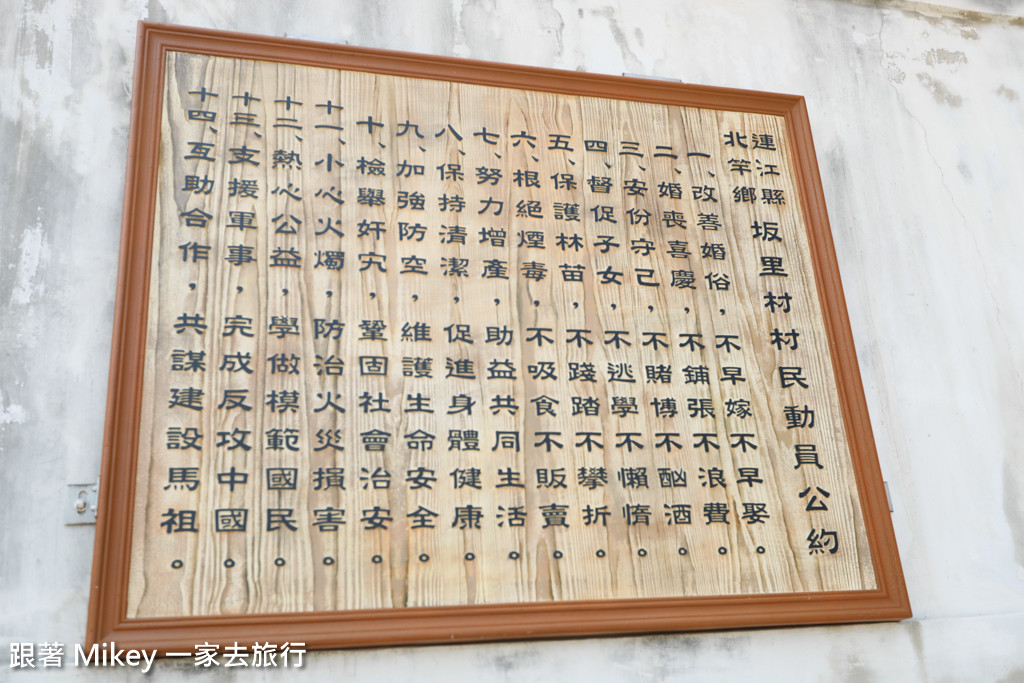 連江縣
北竿鄉
坂里村村民動員公約
一、改善婚俗，不早嫁不早娶。
二、婚喪喜慶，不鋪張不浪費
三、安份守己，不賭博不酗酒。
四、督促子女，不逃學不懶惰。
五、保護林苗，不踐踏不攀折。
六、根絕煙毒，不吸食不販賣。
七、努力增產，助益共同生活。
八、保持清潔，促進身體健康。
九、加強防空，維護生命安全。
十、檢舉奸宄，鞏固社會治安。
十一、小心火燭，防治火災損害。
十二、熱心公益，學做模範國民。
十三、支援軍事，完成反攻中國。
十四、互助合作，共謀建設馬祖。
跟著 Mikey 一家去旅行